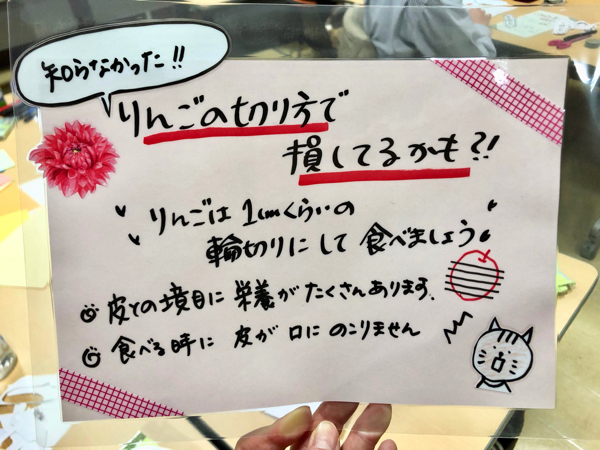 知らなかった!!
りんごの切り方で
損してるかも?!
りんごは1cmくらいの
輪切りにして食べましょう。
皮との境目に栄養がたくさんあります。
食べる時に皮が口にのこりません